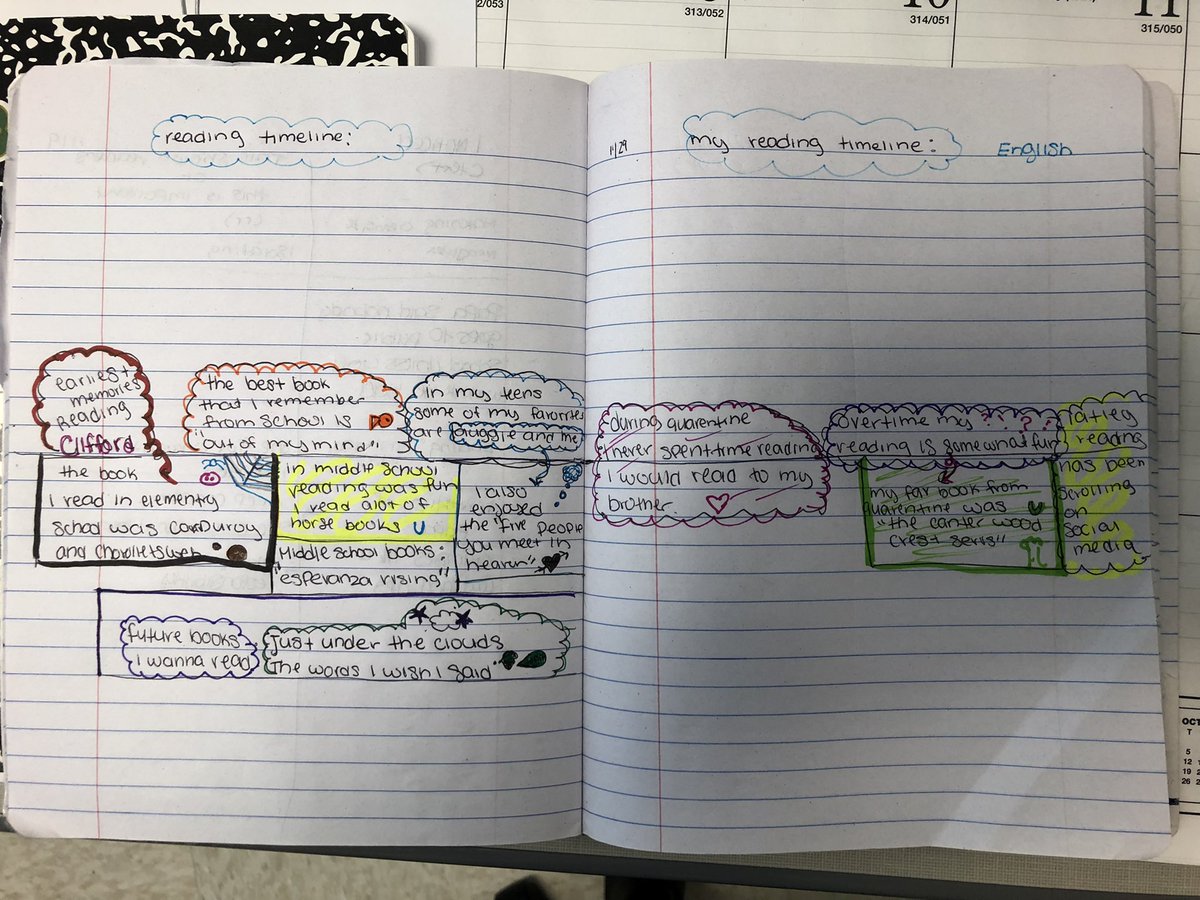 2/053
313/052
10
314/051
11
315/050
reading timeline:
earliest
memories
Reading
Clifford
the best book
that I remember
from school is
"out of my mind"
in my teens
some of my favorites
are auggie and me
the book
I read in elementry
school was corduroy
and
in middle school
reading was fun
I read alot of
horse books
Middle school books:
"esperanza rising"
I also
enjoyed
the "five people
you meet in
heaven"
future books
I wanna read
Just under the clouds
The words I wish I said"
11/29
my reading timeline:
English
during quarentine
I never spent time reading
I would read to my
brother.
overtime my ? ? ?
reading is somewhat fun
my fav book from
quarentine was
"the canter wood
crest seris"
latley
reading
has been
scrolling
on
social
media
OCT
T
5
12
19
26